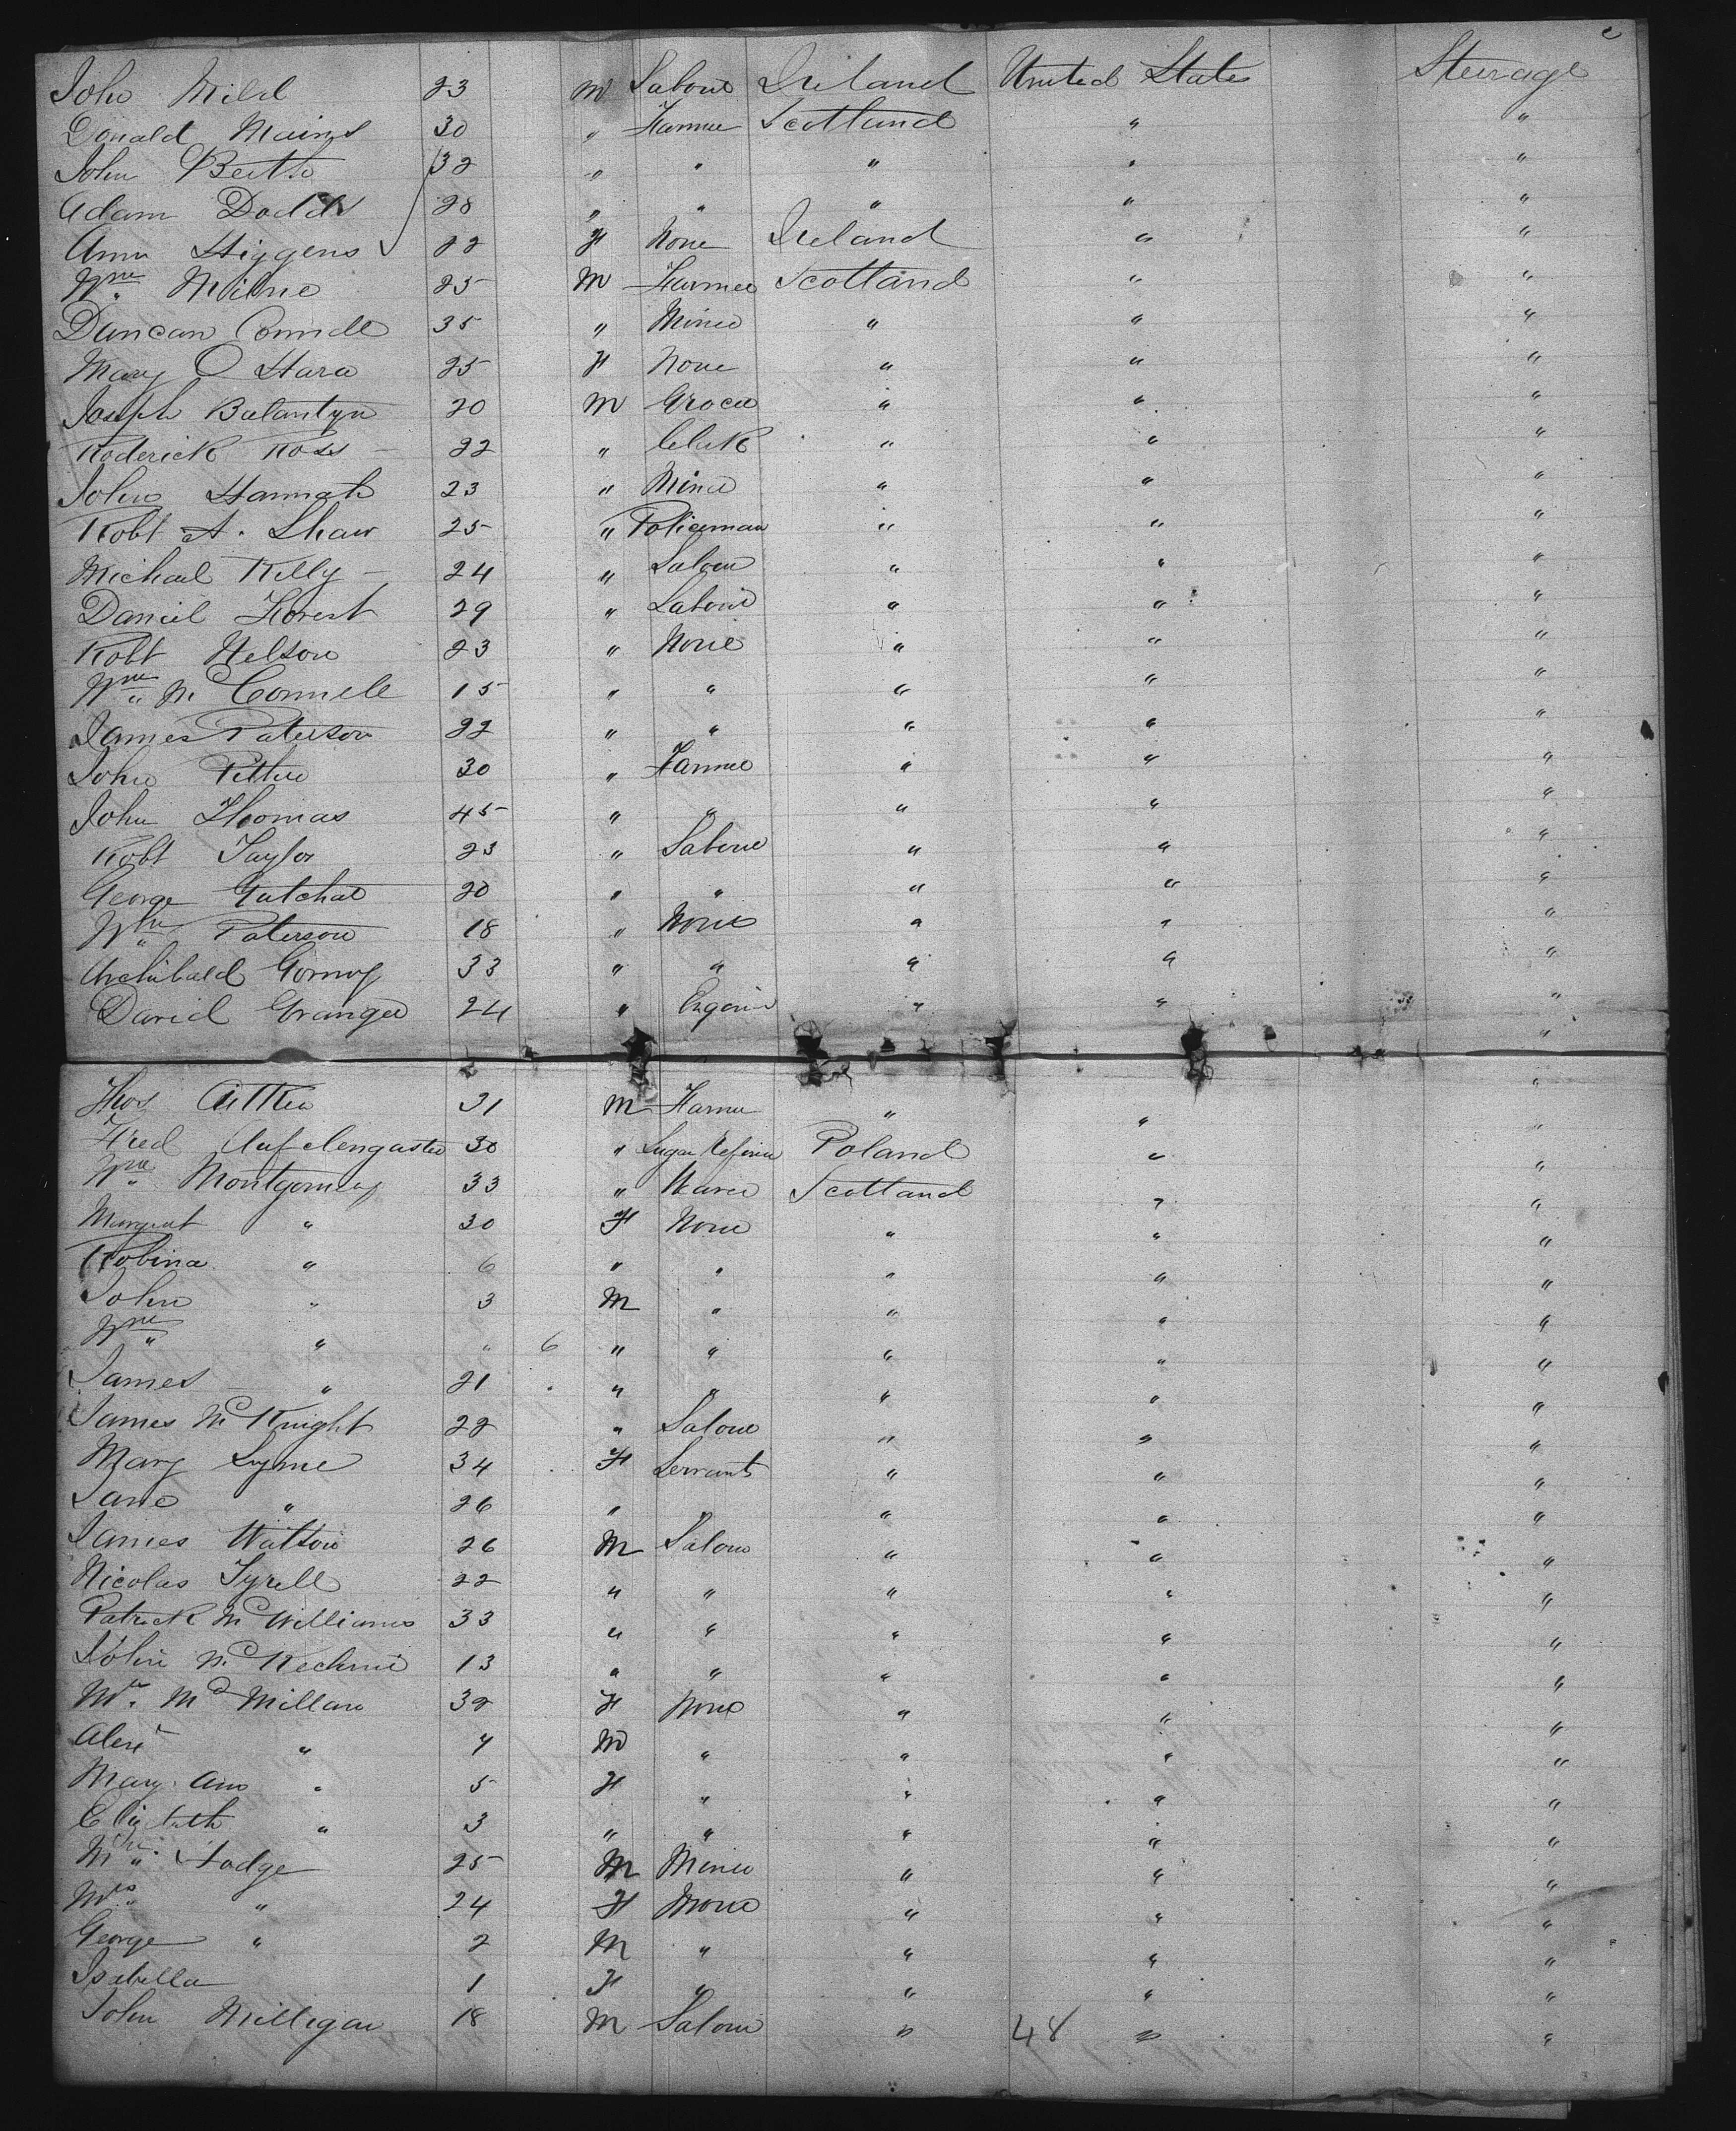 John Mild 23 M Laborer Ireland United States Steerage
Donald Mains 30 " Farmer Scotland " "
John Beith 32 " " " " "
Adam Dodds 28 " " " " "
Ann Higgens 22 F None Ireland " "
Wm Milne 25 M Farmer Scotland " "
Duncan Connell 35 " Miner " " "
Mary O Hara 25 F None " " "
Joseph Balantyn 20 M Grocer " " "
Roderick Ross 22 " Clerk " " "
John Hannah 23 " Miner " " "
Robt A. Shaw 25 " Policeman " " "
Michael Kelly 24 " Laborer " " "
Daniel Forest 29 " Laborer " " "
Robt Nelson 23 " None " " "
Wm McConnell 15 " " " " "
James Paterson 22 " " " " "
John Pettie 30 " Farmer " " "
John Thomas 45 " " " " "
Robt Taylor 23 " Laborer " " "
George 20 " " " " "
Wm Paterson 18 " None " " "
Archibald 33 " " " " "
David Granger 24 " " " "
"
Thos Aitken 31 M Farmer " " "
Fred 30 " Sugar Refiner Poland " "
Wm Montgomery 33 " Scotland " "
Margeret " 30 F None " " "
Robina " 6 " " " " "
John " 3 M " " " "
Wm " " 6 " " " " "
James " 21 " " " " "
James McKnight 22 " Laborer " " "
Mary Lyme 34 F Servants " " "
Jane " 26 " " " " "
James Watson 26 M Laborer " " "
Nicolas Tyrell 22 " " " " "
Patrick McWilliams 33 " " " " "
John McKechnie 13 " " " " "
Mrs McMillan 32 F None " " "
Alexr " 7 M " " " "
Mary Ann " 5 F " " " "
Elizbeth " 3 " " " " "
Wm Hodge 25 M Miner " " "
Mrs " 24 F None " " "
George " 2 M " " " "
Isabella 1 F " " " "
John Milligan 18 M Laborer " 48 " "